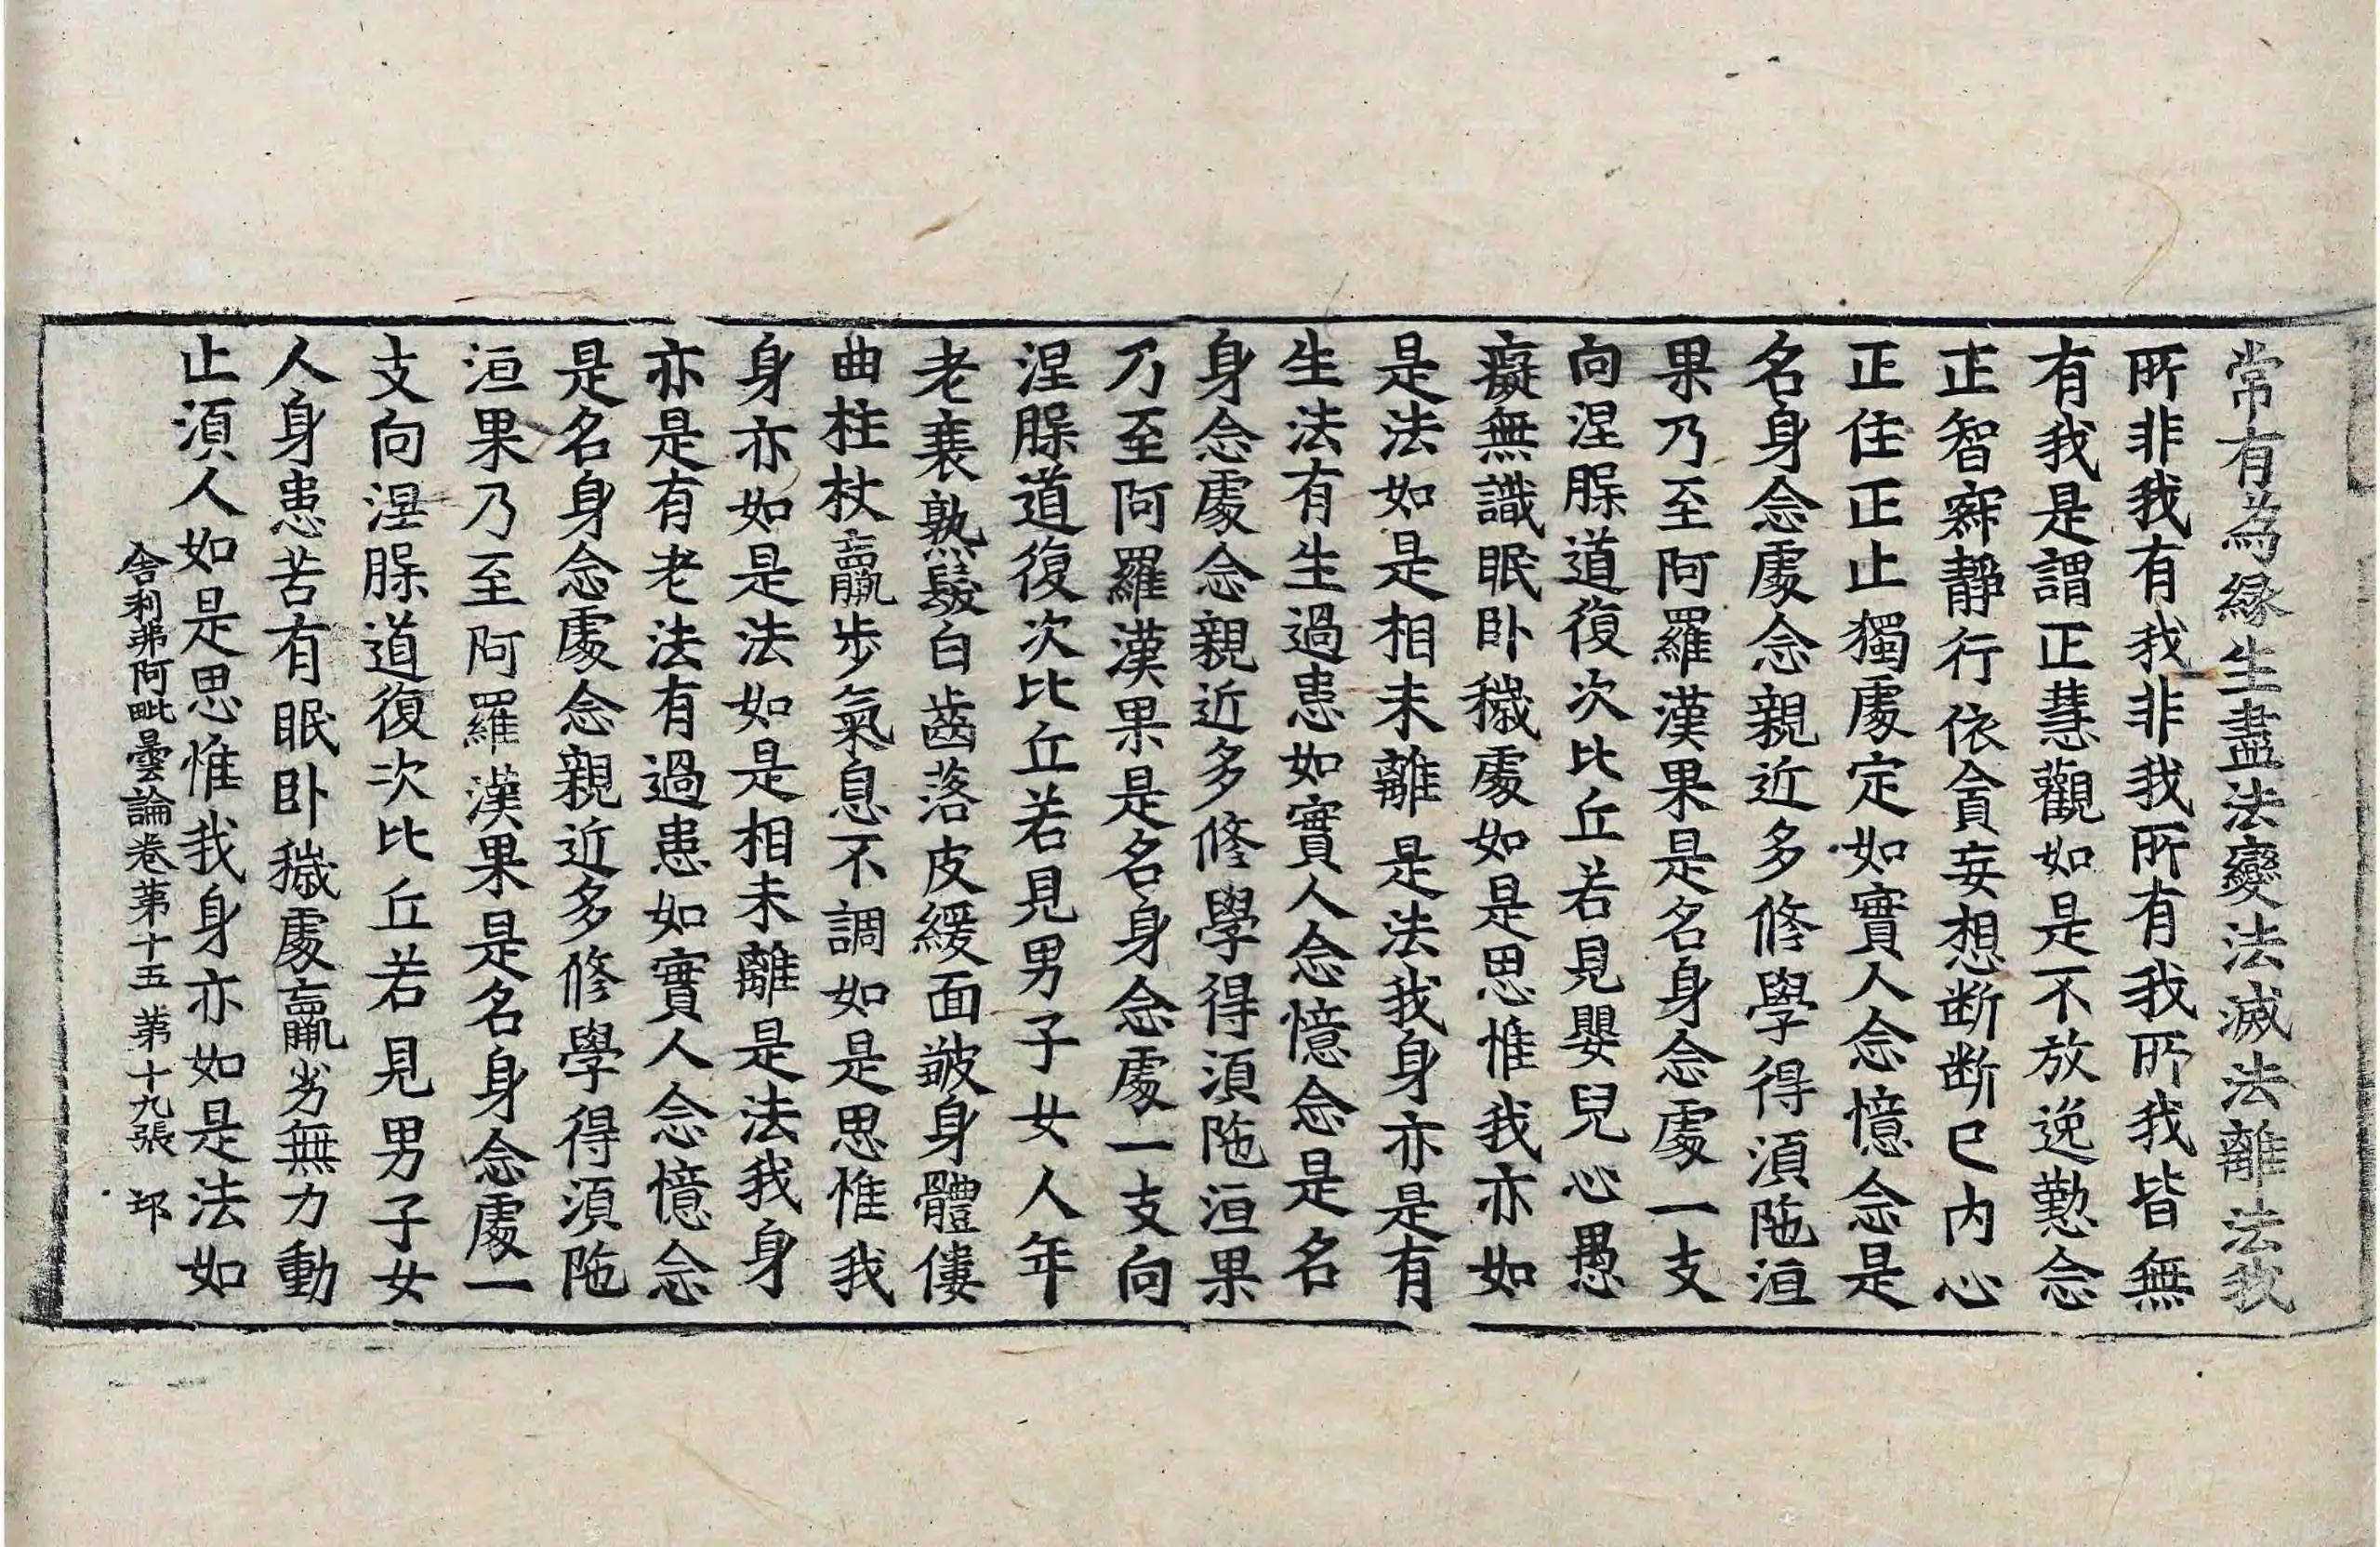 常有為緣生盡法變法滅法離法我
所非我有我非我所有我所我皆無
有我是謂正慧觀如是不放逸懃念
正智寂靜行依貪妄想断断已内心
正住正止獨處定如實人念憶念是
名身念處念親近多修學得湏陁洹
果乃至阿羅漢果是名身念處一支
向涅脲道復次比丘若見嬰兒心愚
癡無識眠卧穢處如是思惟我亦如
是法如是相未離是法我身亦是有
生法有生過患如實人念憶念是名
身念處念親近多修學得湏陁洹果
乃至阿羅漢果是名身念處一支向
涅脲道復次比丘若見男子女人年
老衰熟鬚白齒落皮緩面皺身體僂
曲柱杖羸步氣息不調如是思惟我
身亦如是法如是相未離是法我身
亦是有老法有過患如實人念憶念
是名身念處念親近多修學得湏陁
洹果乃至阿羅漢果是名身念處一
支向涅脲道復次比丘若見男子女
人身患苦有眠卧穢處羸劣無力動
止湏人如是思惟我身亦如是法如
舍利弗阿毗曇論卷第十五 第十九張 𨚗